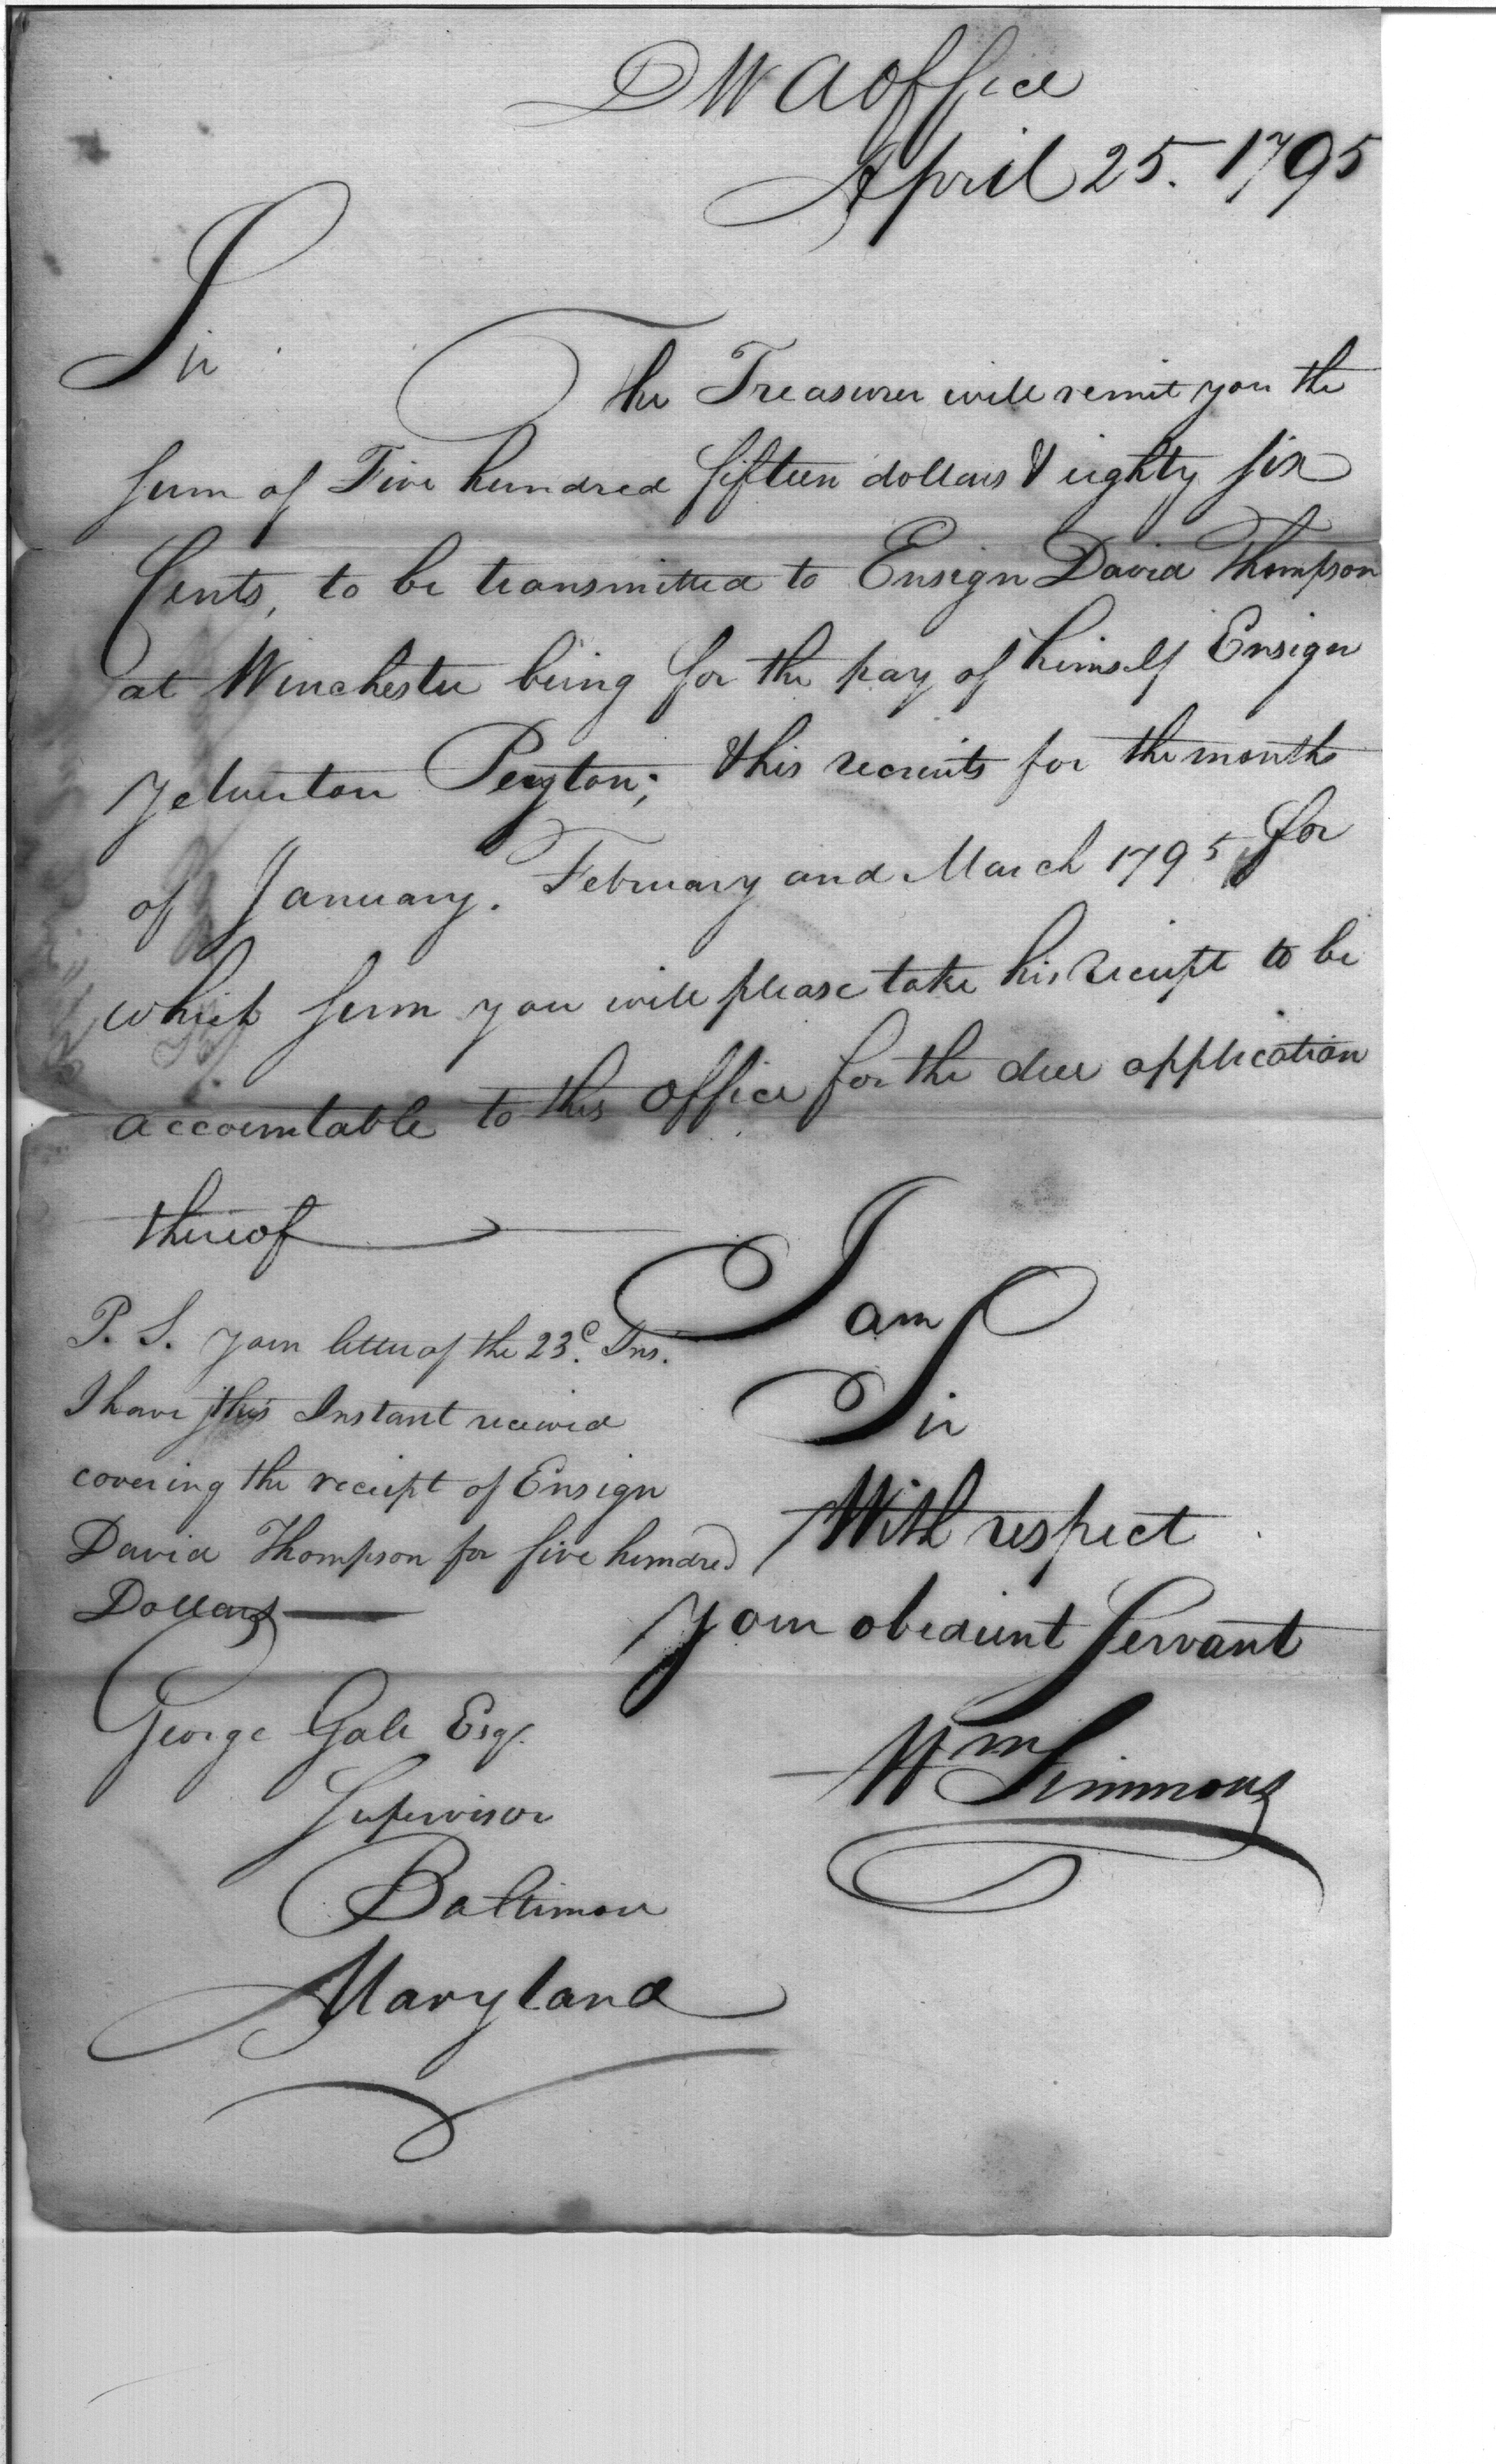 D W A Office
April 25. 1795
Sir
The Treasurer will remit you the
sum of Five hundred fifteen dollars & eighty six
Cents, to be transmitted to Ensign David Thompson
at Winchester being for the pay of himself Ensign
Yelverton Peyton; & his recruits for the months
of January. February and March 1795, for
which sum you will please take his receipt to be
accountable to this Office for the due application
thereof
I am
Sir
With respect
Your obedient Servant
Wm Simmons
P. S. Your letter of the 23d. Ins.
I have this Instant received
covering the receipt of Ensign
David Thompson for five hundred
Dollars
George Gale Esqr.
Supervisor
Baltimore
Maryland